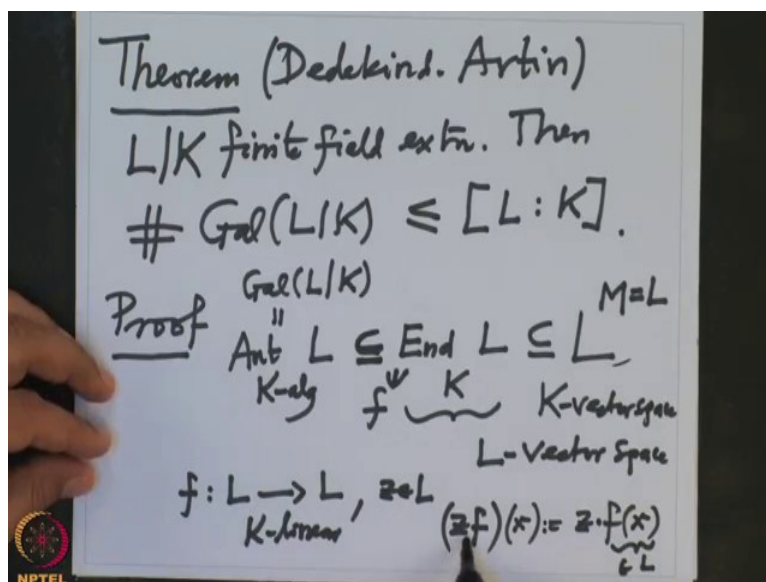 Theorem (Dedekind. Artin)
L|K finite field extn. Then
# Gal(L|K) ≤ [L : K].
Gal(L|K)
Proof
"
M=L
Aut L ⊆ End L ⊆ L
K-alg f K K-vector space
L-Vector Space
f : L → L, z∈L
K-linear
(zf)(x) := z·f(x)
∈ L
NPTEL